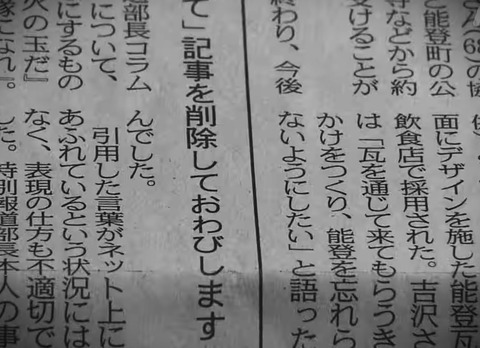 (68)の協
と能登町の公
守などから約
受けることが
終わり、今後
面にデザインを施した能登瓦
飲食店で採用された。吉沢さ
は「瓦を通じて来てもらうき
かけをつくり、能登を忘れら
ないようにしたい」と語った
て」記事を削除しておわびします
部長コラム
について、
にするもの
火の玉だ』
んでした。
引用した言葉がネット上に
あふれているという状況には
なく、表現の仕方も不適切で
した。特別報道部長本人の事